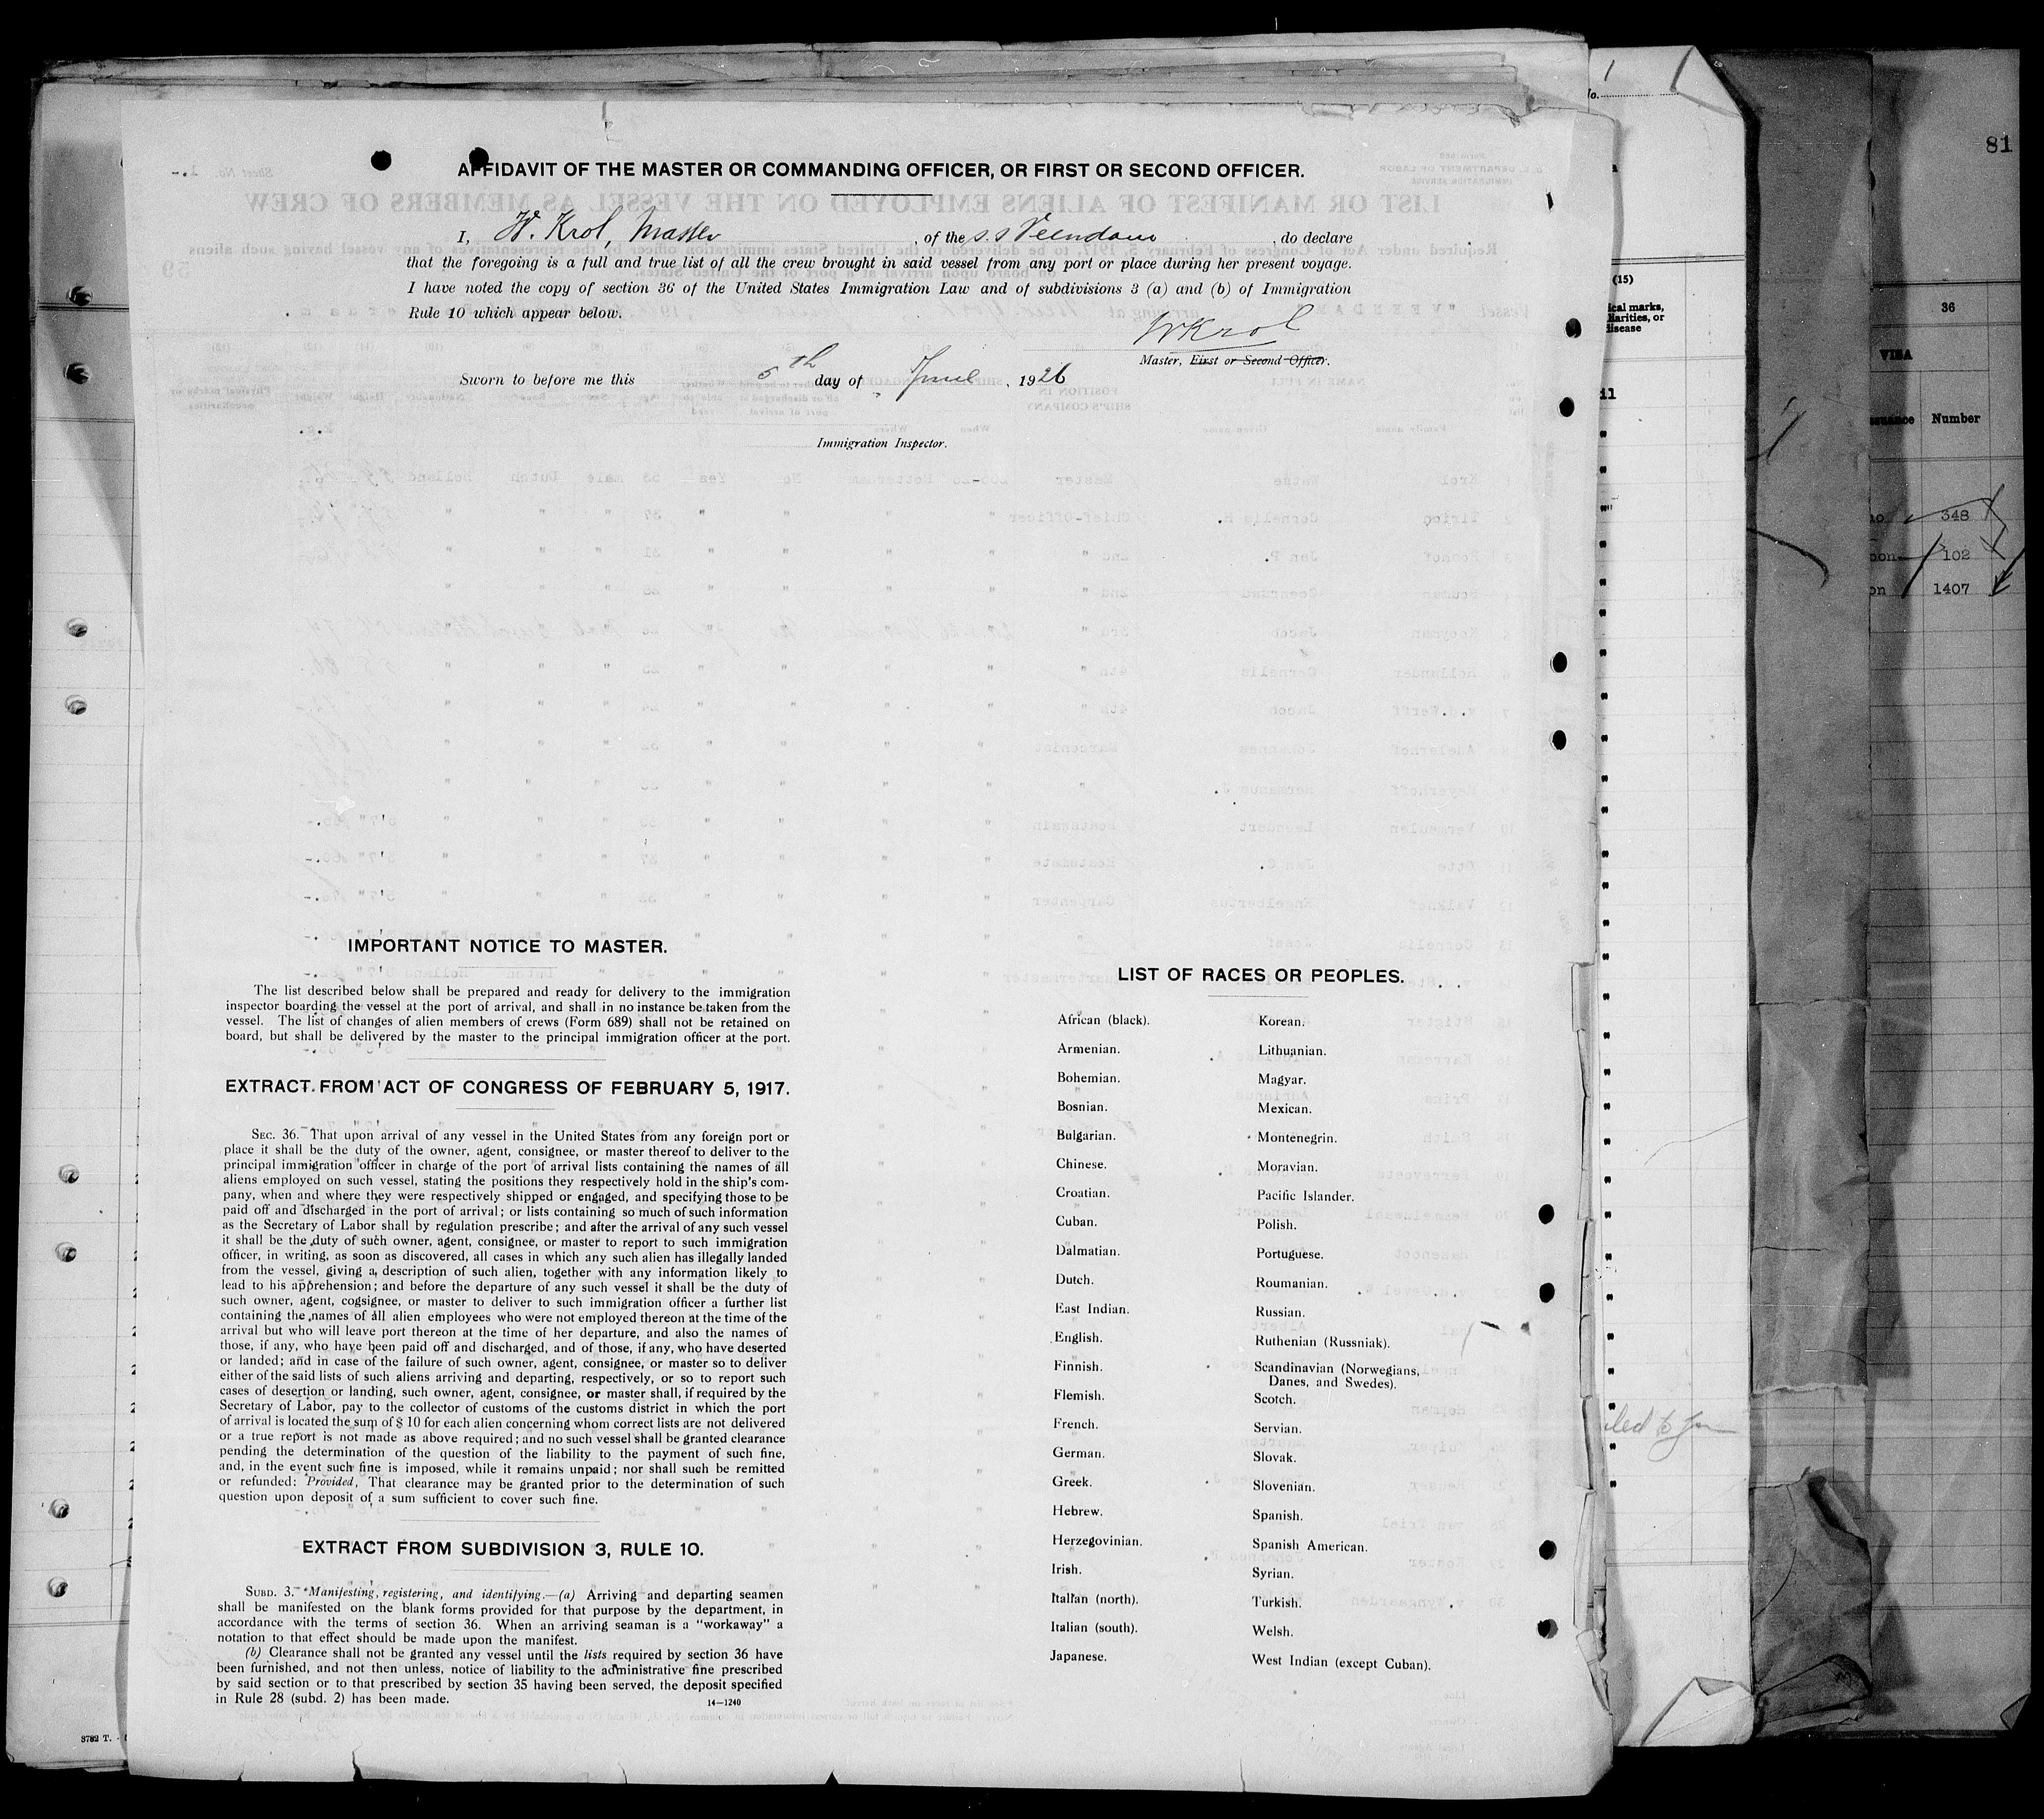 AFFIDAVIT OF THE MASTER OR COMMANDING OFFICER, OR FIRST OR SECOND OFFICER.
I, W. Krol, Master, of the s.s Veendam, do declare
that the foregoing is a full and true list of all the crew brought in said vessel from any port or place during her present voyage.
I have noted the copy of section 36 of the United States Immigration Law and of subdivisions 3 (a) and (b) of Immigration
Rule 10 which appear below.
WKrol
Master, First or Second Officer.
Sworn to before me this 5th day of June, 1926
Immigration Inspector.
IMPORTANT NOTICE TO MASTER.
The list described below shall be prepared and ready for delivery to the immigration
inspector boarding the vessel at the port of arrival, and shall in no instance be taken from the
vessel. The list of changes of alien members of crews (Form 689) shall not be retained on
board, but shall be delivered by the master to the principal immigration officer at the port.
EXTRACT FROM ACT OF CONGRESS OF FEBRUARY 5, 1917.
SEC. 36. That upon arrival of any vessel in the United States from any foreign port or
place it shall be the duty of the owner, agent, consignee, or master thereof to deliver to the
principal immigration officer in charge of the port of arrival lists containing the names of all
aliens employed on such vessel, stating the positions they respectively hold in the ship's com-
pany, when and where they were respectively shipped or engaged, and specifying those to be
paid off and discharged in the port of arrival; or lists containing so much of such information
as the Secretary of Labor shall by regulation prescribe; and after the arrival of any such vessel
it shall be the duty of such owner, agent, consignee, or master to report to such immigration
officer, in writing, as soon as discovered, all cases in which any such alien has illegally landed
from the vessel, giving a description of such alien, together with any information likely to
lead to his apprehension; and before the departure of any such vessel it shall be the duty of
such owner, agent, cogsignee, or master to deliver to such immigration officer a further list
containing the names of all alien employees who were not employed thereon at the time of the
arrival but who will leave port thereon at the time of her departure, and also the names of
those, if any, who have been paid off and discharged, and of those, if any, who have deserted
or landed; and in case of the failure of such owner, agent, consignee, or master so to deliver
either of the said lists of such aliens arriving and departing, respectively, or so to report such
cases of desertion or landing, such owner, agent, consignee, or master shall, if required by the
Secretary of Labor, pay to the collector of customs of the customs district in which the port
of arrival is located the sum of $10 for each alien concerning whom correct lists are not delivered
or a true report is not made as above required; and no such vessel shall be granted clearance
pending the determination of the question of the liability to the payment of such fine,
and, in the event such fine is imposed, while it remains unpaid; nor shall such be remitted
or refunded: Provided, That clearance may be granted prior to the determination of such
question upon deposit of a sum sufficient to cover such fine.
EXTRACT FROM SUBDIVISION 3, RULE 10.
SUBD. 3. Manifesting, registering, and identifying.—(a) Arriving and departing seamen
shall be manifested on the blank forms provided for that purpose by the department, in
accordance with the terms of section 36. When an arriving seaman is a "workaway" a
notation to that effect should be made upon the manifest.
(b) Clearance shall not be granted any vessel until the lists required by section 36 have
been furnished, and not then unless, notice of liability to the administrative fine prescribed
by said section or to that prescribed by section 35 having been served, the deposit specified
in Rule 28 (subd. 2) has been made.
14—1240
LIST OF RACES OR PEOPLES.
African (black).
Armenian.
Bohemian.
Bosnian.
Bulgarian.
Chinese.
Croatian.
Cuban.
Dalmatian.
Dutch.
East Indian.
English.
Finnish.
Flemish.
French.
German.
Greek.
Hebrew.
Herzegovinian.
Irish.
Italian (north).
Italian (south).
Japanese.
Korean.
Lithuanian.
Magyar.
Mexican.
Montenegrin.
Moravian.
Pacific Islander.
Polish.
Portuguese.
Roumanian.
Russian.
Ruthenian (Russniak).
Scandinavian (Norwegians,
Danes, and Swedes).
Scotch.
Servian.
Slovak.
Slovenian.
Spanish.
Spanish American.
Syrian.
Turkish.
Welsh.
West Indian (except Cuban).
3782 T.
(15)
disease
81
36
VISA
Number
348
102
1407